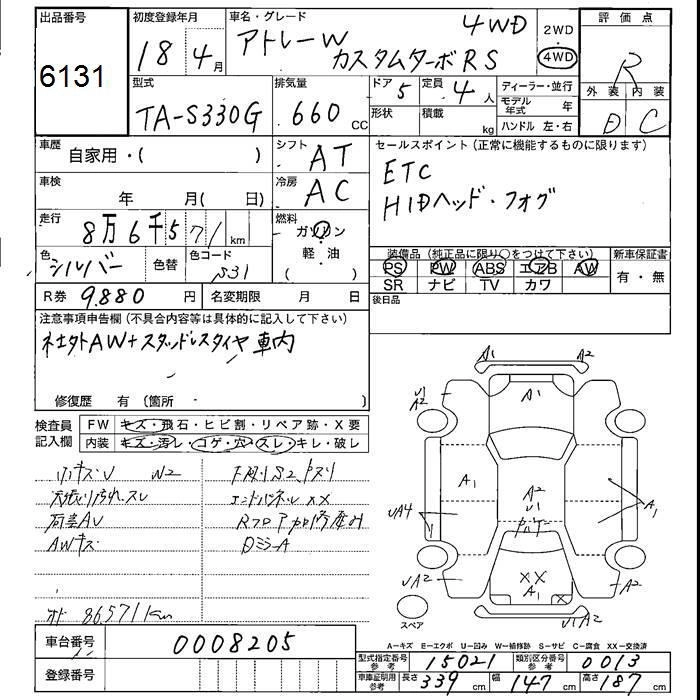 出品番号
6131
初度登録年月
18 4月
車名・グレード
アトレーW 4WD
カスタムターボRS
2WD
4WD
評価点
R
外装 内装
D C
型式
TA-S330G
排気量
660 CC
ドア 5
定員 4人
形状
積載 kg
ディーラー・並行
モデル年式 年
ハンドル 左・右
車歴
自家用・( )
シフト
AT
車検
年 月( 日)
冷房
AC
セールスポイント(正常に機能するものに限ります)
ETC
HIDヘッド・フォグ
走行
8万6千571km
燃料
ガソリン
軽・油
( )
色
シルバー
色替
色コード
S31
装備品(純正品に限り○をつけて下さい)
PS PW ABS エアB AW
SR ナビ TV カワ
新車保証書
有・無
R券 9.880円
名変期限 月 日
後日品
注意事項申告欄(不具合内容等は具体的に記入して下さい)
社外AW+スタッドレスタイヤ車内
修復歴 有(箇所 )
検査員記入欄
FW キズ・飛石・ヒビ割・リペア跡・X要
内装 キズ・汚レ・コゲ・穴・スレ・キレ・破レ
W2
エンドパネルXX
AWキズ
DミラーA
86571km
A1 A2
U1
A2
A1
A1
A2
U1
UA4
A1
UA2
XX
A1
A2
U1A2
スペア
A=キズ E=エクボ U=凹み W=補修跡 S=サビ C=腐食 XX=交換済
車台番号
0008205
登録番号
型式指定番号 参考 15021
類別区分番号 参考 0013
車庫証明用 参考 長さ 339cm 幅 147cm 高さ 187cm